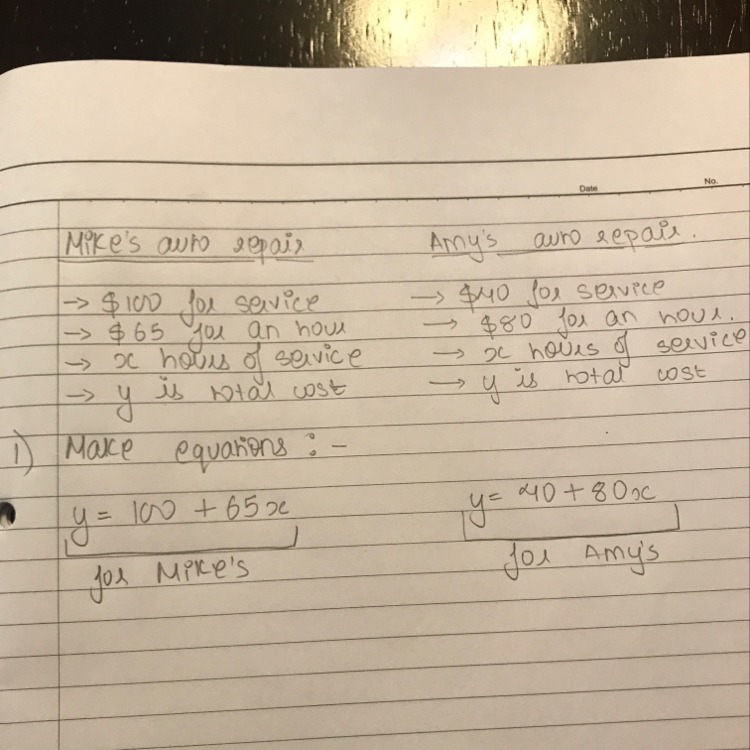 Date No.
Mike's auto repair
Amy's auto repair.
→ $100 for service
→ $65 for an hour
→ x hours of service
→ y is total cost
→ $40 for service
→ $80 for an hour.
→ x hours of service
→ y is total cost
1) Make equations :-
y = 100 + 65x
for Mike's
y = 40 + 80x
for Amy's